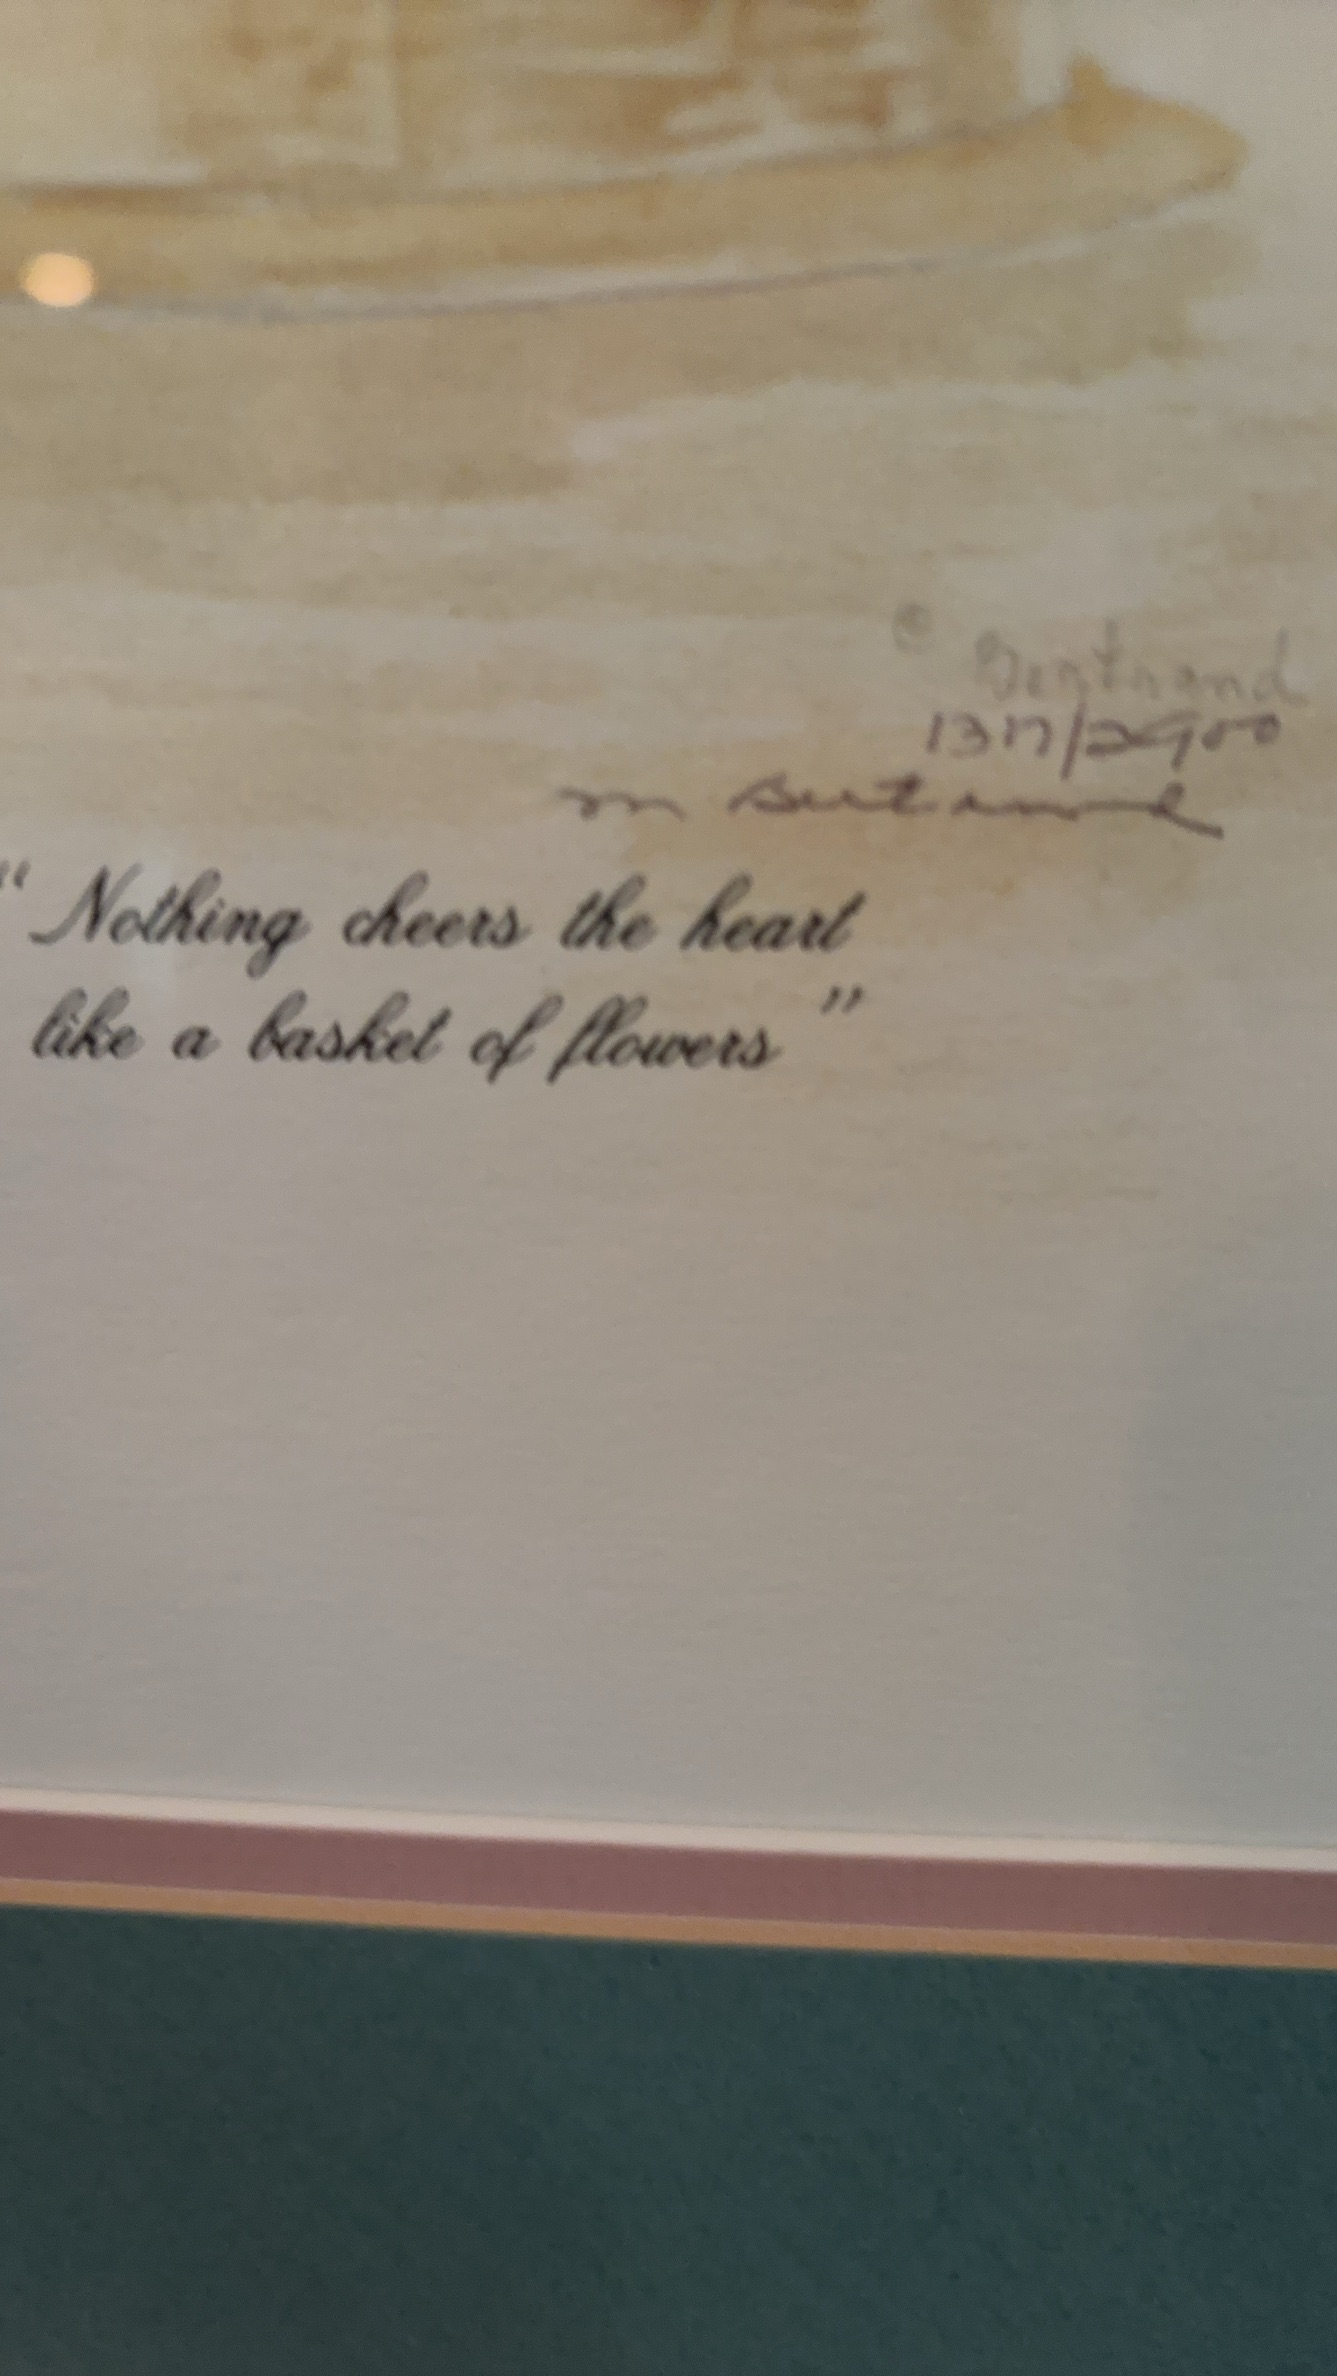 © Bertrand
1317/2900
m Bertrand
"Nothing cheers the heart
like a basket of flowers"